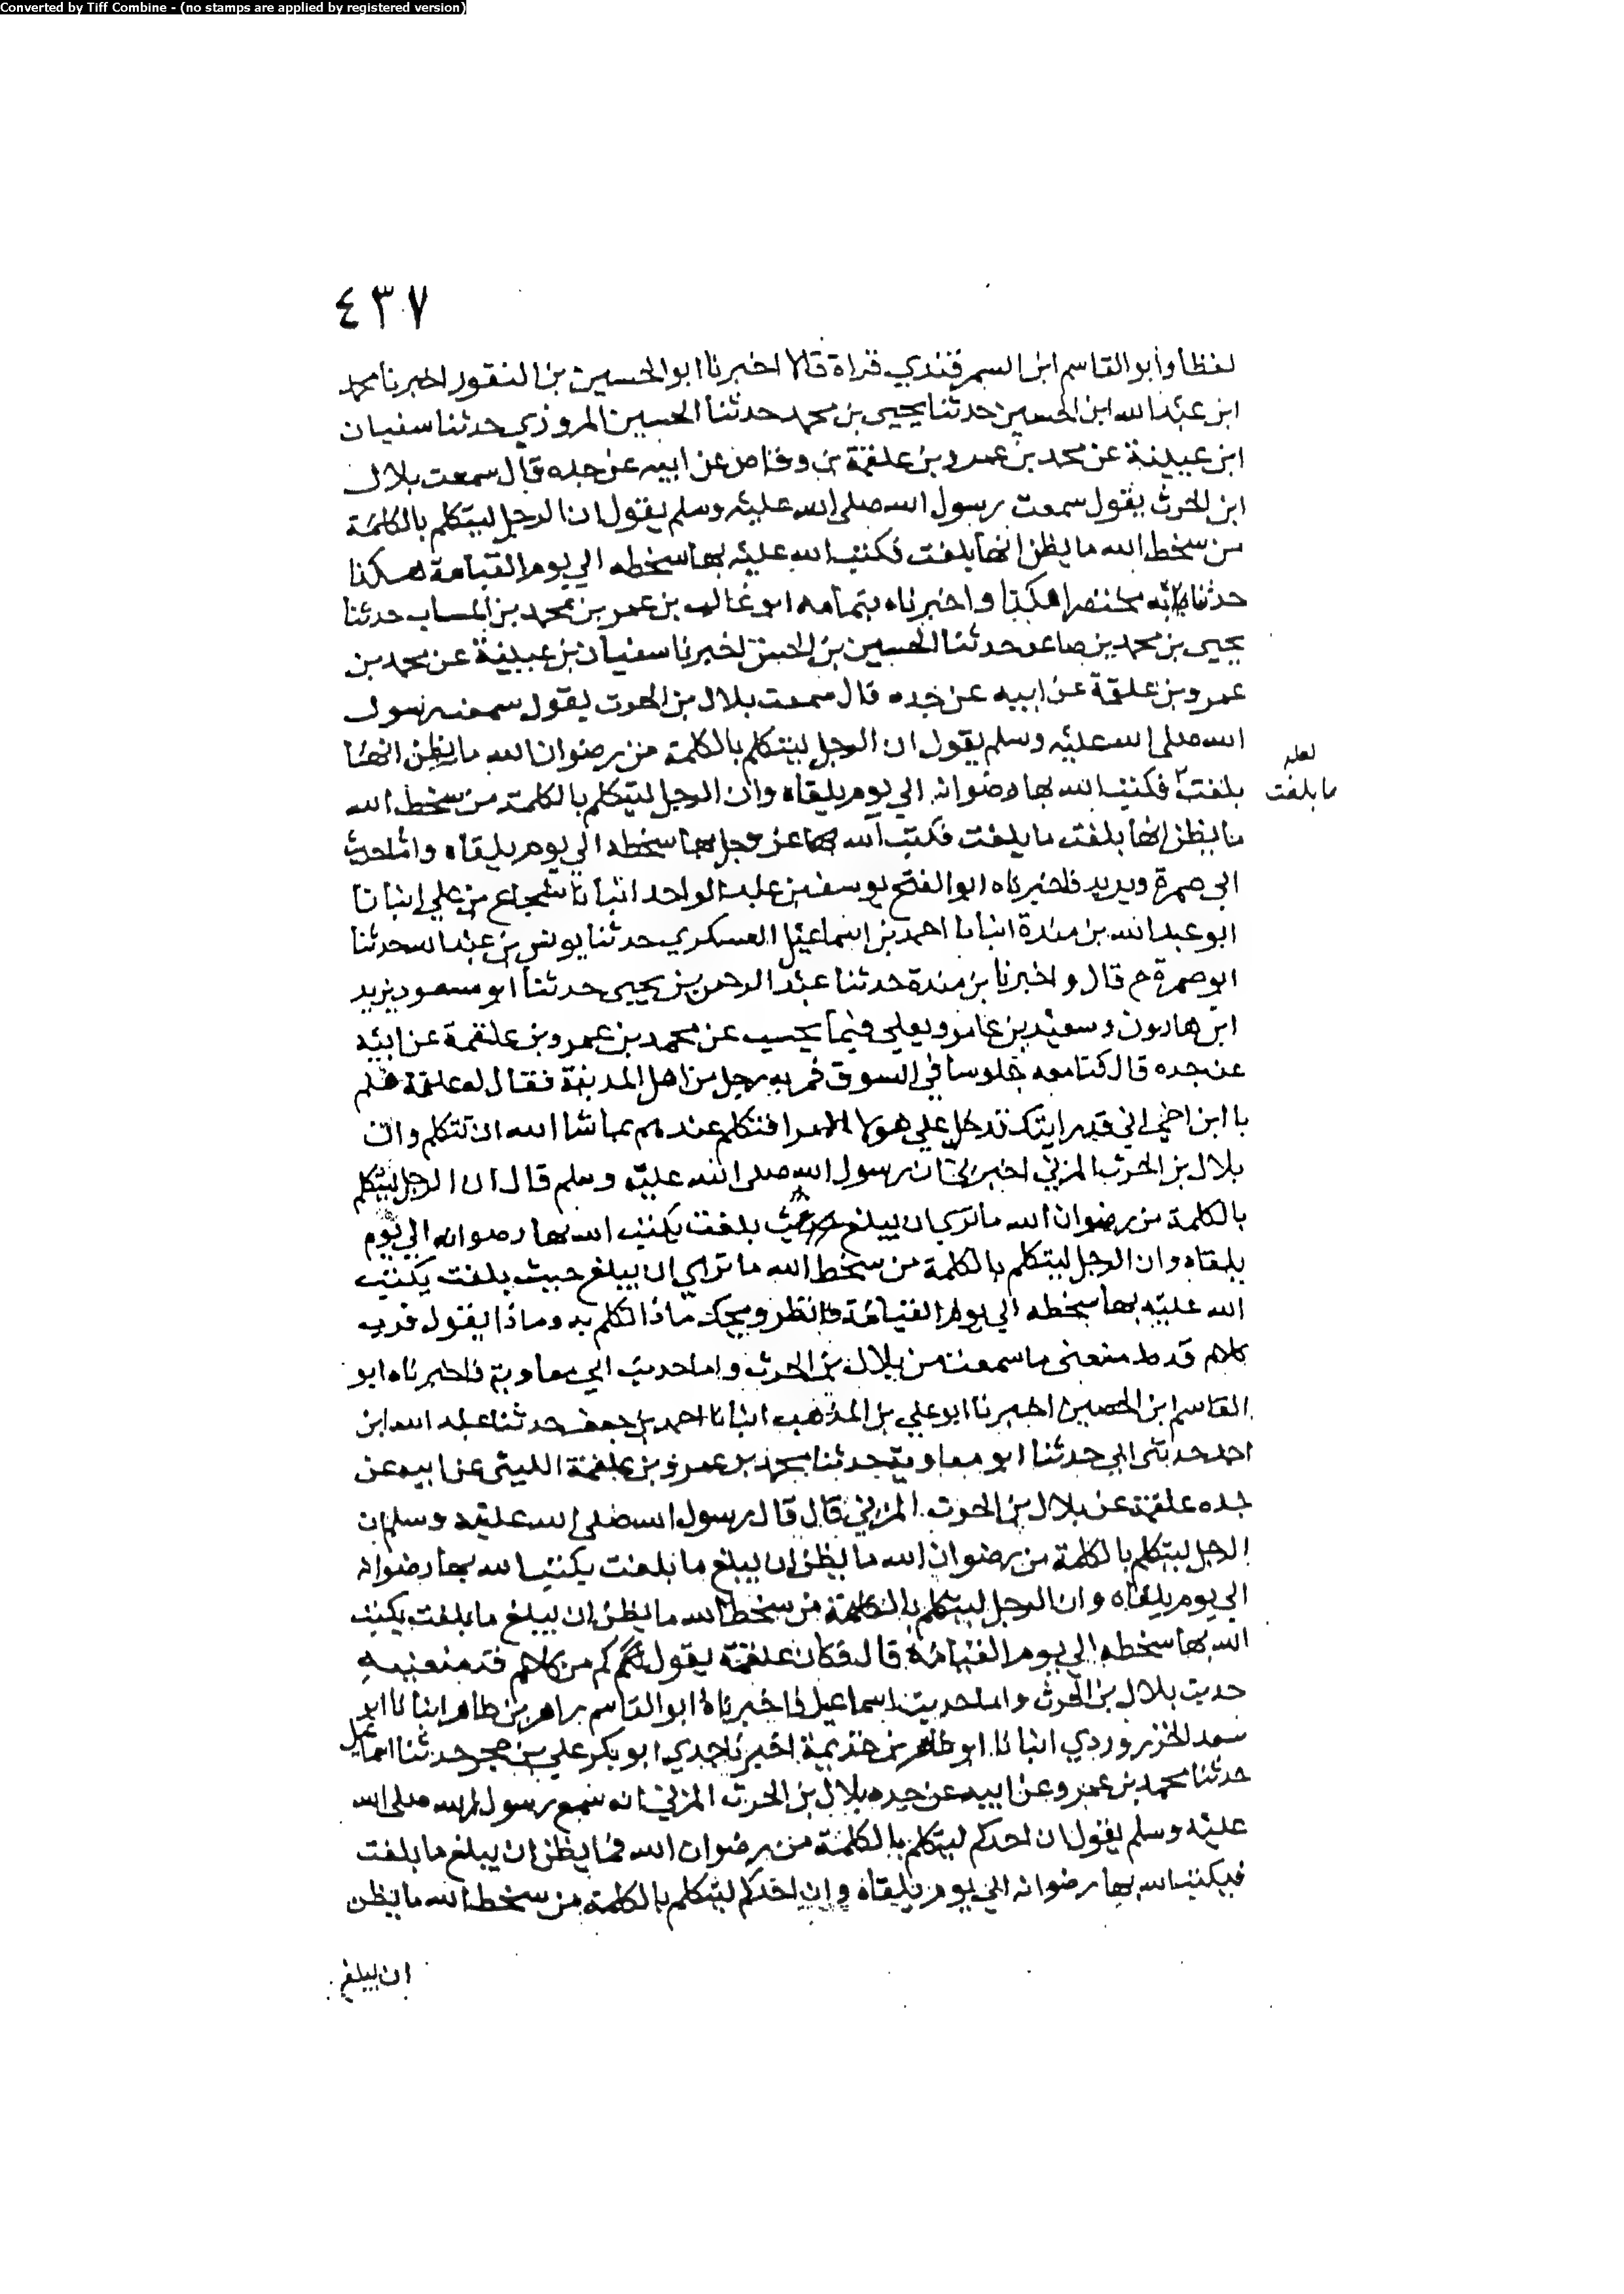 Converted by Tiff Combine - (no stamps are applied by registered version)
٤٣٧
لفظا وأبو القاسم ابن السمرقندي قراة قالا اخبرنا ابو الحسين بن النقور اخبرنا محمد
ابن عبد الله ابن الحسين حدثنا يحيى بن محمد حدثنا الحسين المروزي حدثنا سفيان
ابن عيينة عن محمد بن عمرو بن علقمة بن وقاص عن ابيه عن جده قال سمعت بلال
ابن الحرث يقول سمعت رسول الله صلى الله عليه وسلم يقول ان الرجل ليتكلم بالكلمة
من سخط الله ما يظن انها بلغت فكتب الله عليه بها سخطه الي يوم القيامة هكذا
حدثنا به مختصرا هكذا واخبرناه بتمامه ابو غالب بن عمر بن محمد بن حدثنا
يحيى بن محمد بن صاعد حدثنا الحسين بن الحسن اخبرنا سفيان بن عيينة عن محمد بن
عمرو بن علقمة عن ابيه عن جده قال سمعت بلال بن الحرث يقول سمعت رسول
الله صلى الله عليه وسلم يقول ان الرجل ليتكلم بالكلمة من رضوان الله ما يظن انها
بلغت فكتب الله بها رضوانه الي يوم يلقاه وان الرجل ليتكلم بالكلمة من سخط الله
لعله
ما بلغت
ما يظن انها بلغت ما بلغت فكتب الله بها عز وجل بها سخطه الي يوم يلقاه واما حديث
ابي ضمرة ويزيد فاخبرناه ابو الفتح يوسف بن عبد الواحد انبانا شجاع بن علي انبانا
ابو عبد الله بن مندة انبانا احمد بن اسماعيل العسكري حدثنا يونس بن عبد الله حدثنا
ابو ضمرة ح قال واخبرنا بن مندة حدثنا عبد الرحمن بن يحيى حدثنا ابو مسعود يزيد
ابن هارون وسعيد بن عامر ويعلي فيما يحسب عن محمد بن عمرو بن علقمة عن ابيه
عن جده قال كنا معه جلوسا في السوق فمر به رجل من اهل المدينة فقال له علقمة هلم
يا ابن اخي اني قد رايتك تدخل علي هولا الامرا فتكلم عندهم بما شا الله ان تتكلم وان
بلال بن الحرث المزني اخبرني ان رسول الله صلى الله عليه وسلم قال ان الرجل ليتكلم
بالكلمة من رضوان الله ما تري ان يبلغ حيث بلغت يكتب الله بها رضوانه الي يوم
يلقاه وان الرجل ليتكلم بالكلمة من سخط الله ما تراي ان يبلغ حيث بلغت يكتب
الله عليه بها سخطه الي يوم القيامة فانظر ويحك ماذا تكلم به وماذا يقول فرب
كلام قد منعني ما سمعت من بلال بن الحرث واما حديث ابي معاوية فاخبرناه ابو
القاسم ابن الحصين اخبرنا ابو علي بن المذهب انبانا احمد بن جعفر حدثنا عبد الله ابن
احمد حدثني ابي حدثنا ابو معاوية حدثنا محمد بن عمرو بن علقمة الليثي عن ابيه عن
جده علقمة عن بلال بن الحرث المزني قال قال رسول الله صلى الله عليه وسلم ان
الرجل ليتكلم بالكلمة من رضوان الله ما يظن ان يبلغ ما بلغت يكتب الله بها رضوانه
الي يوم يلقاه وان الرجل ليتكلم بالكلمة من سخط الله ما يظن ان يبلغ ما بلغت يكتب
الله بها سخطه الي يوم القيامة قال فكان علقمة يقول كم من كلام قد منعنيه
حديث بلال بن الحرث واما حديث اسماعيل فاخبرناه ابو القاسم زاهر بن طاهر انبانا ابو
سعد الخزروردي انبانا ابو طاهر بن خزيمة اخبرنا جدي ابو بكر علي بن حجر حدثنا اسماعيل
حدثنا محمد بن عمرو عن ابيه عن جده بلال بن الحرث المزني انه سمع رسول الله صلى الله
عليه وسلم يقول ان احدكم ليتكلم بالكلمة من رضوان الله فما يظن ان يبلغ ما بلغت
فيكتب الله بها رضوانه الي يوم يلقاه وان احدكم ليتكلم بالكلمة من سخط الله ما يظن
ان يبلغ